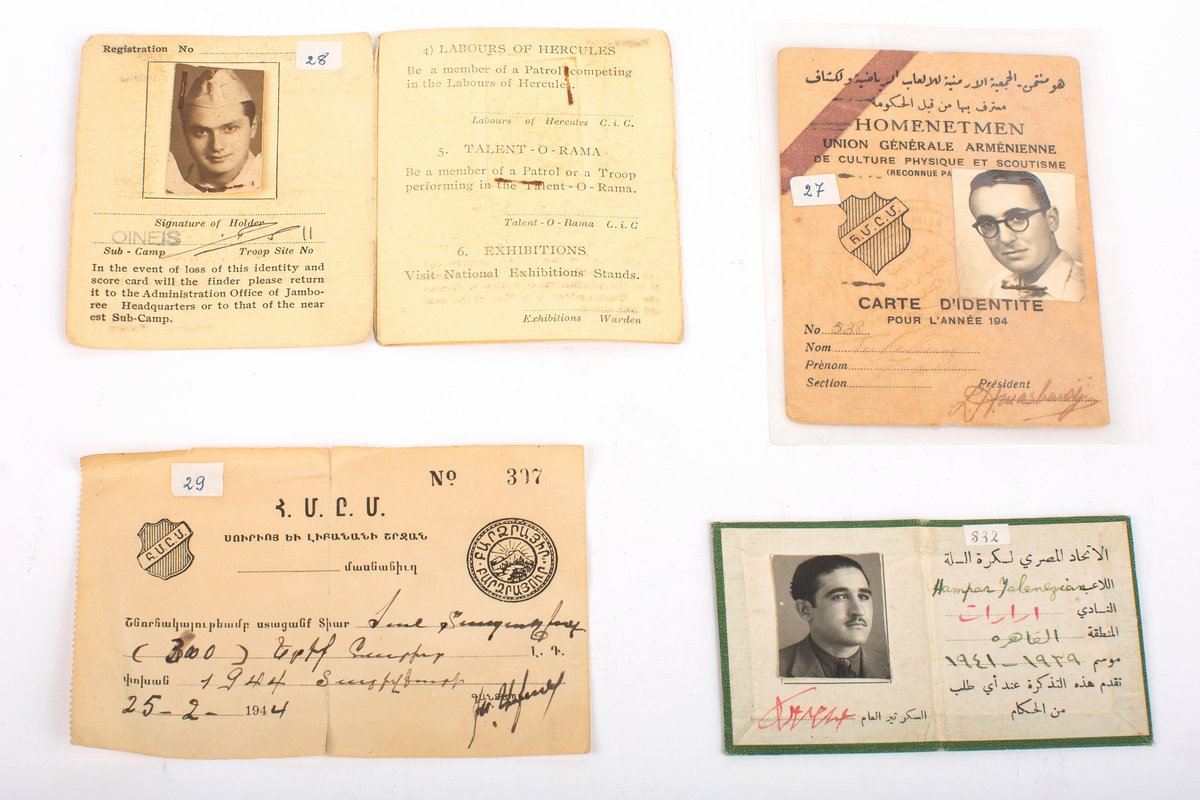 Registration No
28
Signature of Holder
OINEIS
11
Sub - Camp
Troop Site No
In the event of loss of this identity and
score card will the finder please return
it to the Administration Office of Jambo-
ree Headquarters or to that of the near
est Sub-Camp.
4) LABOURS OF HERCULES
Be a member of a Patrol competing
in the Labours of Hercules.
Labours of Hercules C. i. C.
5. TALENT - O - RAMA
Be a member of a Patrol or a Troop
performing in the Talent - O - Rama.
Talent - O - Rama C. i. C
6. EXHIBITIONS
Visit National Exhibitions Stands.
Exhibitions Warden
هو منتمن - الجمعية الارمنية للالعاب الرياضية والكشاف
معترف بها من قبل الحكومة
HOMENETMEN
UNION GÉNÉRALE ARMÉNIENNE
DE CULTURE PHYSIQUE ET SCOUTISME
(RECONNUE PA
27
Հ.Մ.Ը.Մ.
CARTE D'IDENTITE
POUR L'ANNÉE 194
No 538
Nom
Prènom
Section
Président
29
No 307
Հ. Մ. Ը. Մ.
ՍՈՒՐԻՈՅ ԵՒ ԼԻԲԱՆԱՆԻ ՇՐՋԱՆ
Հ.Մ.Ը.Մ.
ԲԱՐՁՐԱՑԻՐ ԲԱՐՁՐԱՑՈՒՐ
մասնաճիւղ
Շնորհակալութեամբ ստացանք Տիար
( 300 )
Լ. Ղ.
փոխան 1944
25 - 2 - 1944
332
الاتحاد المصري لكرة السلة
اللاعب Hampar Yalenezian
النادي ارارات
المنطقة القاهرة
موسم ١٩٣٩ — ١٩٤١
تقدم هذه التذكرة عند أي طلب
من الحكام
السكرتير العام